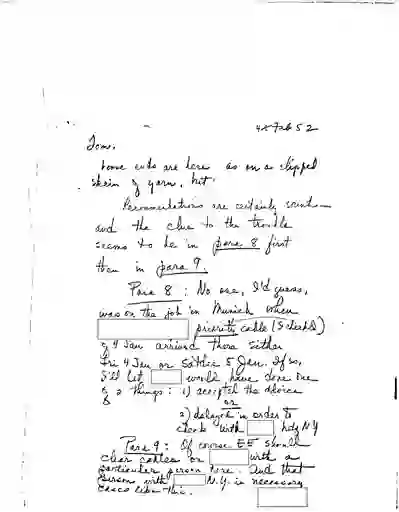 4 Feb 52
Tom,
Loose ends are here as on a slipped
skein of yarn, but
Recommendations are certainly sound
and the clue to the trouble
seems to be in para 8 first
then in para 9.
Para 8 : No one, I'd guess,
was on the job in Munich when
priority cable
of 4 Jan arrived there either
Fri 4 Jan or Sat 5 Jan. If so,
I'll bet would have done one
of 2 things: 1) accepted the advice
or
2) delayed in order to
check with hdq NY
Para 9: Of course EE should
clear cables on with a
particular person here. And that
person with N.Y. is necessary
cases like this.